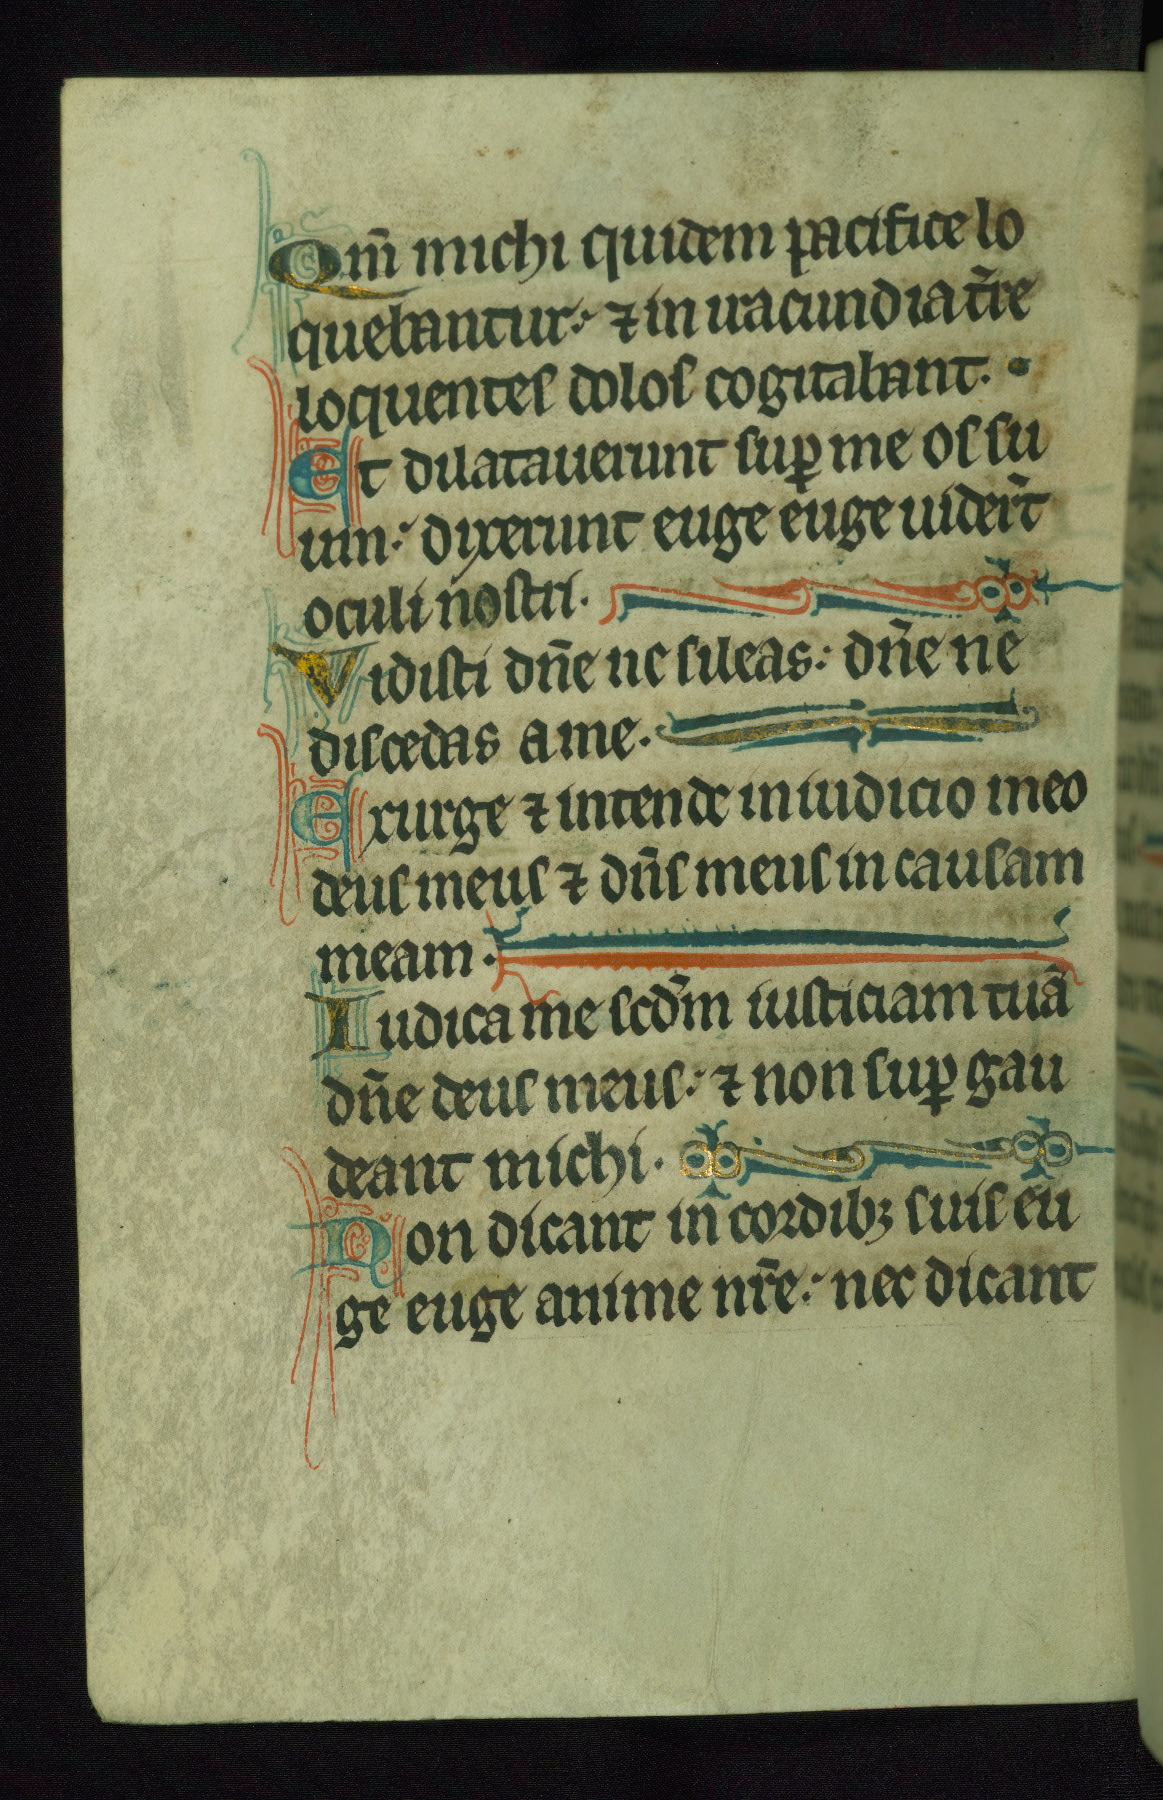 Qm̄ michi quidem pacifice lo
quebantur: ⁊ in iracundia t̄re
loquentes dolos cogitabant.
Et dilatauerunt suꝑ me os su
um: dixerunt euge euge uider̄t
oculi nostri.
Vidisti dn̄e ne sileas: dn̄e ne
discedas a me.
Exurge ⁊ intende in iudicio meo
deus meus ⁊ dn̄s meus in causam
meam.
Iudica me scd̄m iusticiam tuā
dn̄e deus meus: ⁊ non suꝑ gau
deant michi.
Non dicant in cordibꝫ suis eu
ge euge anime nr̄e: nec dicant